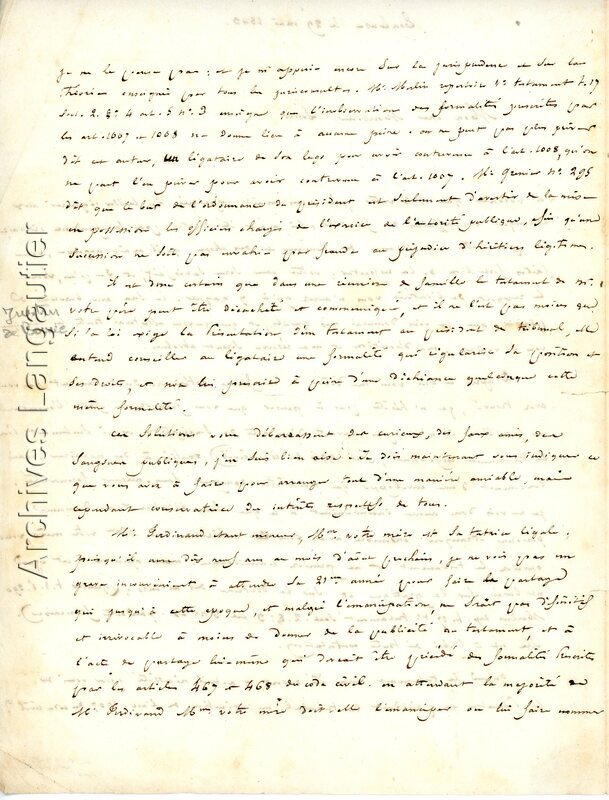 je ne le pense pas ; et je m'appuie encore sur la jurisprudence et sur la
théorie enseignée par tous les jurisconsultes. Mr. Merlin repertoire Vo. testament t. 17
sect. 2. § 4 art. 5 no. 3 enseigne que l'inobservation des formalités prescrites par
les art. 1007 et 1008 ne donne lieu à aucune peine. on ne peut pas plus priver
dit cet auteur, un légataire de son legs pour avoir contrevenu à l'art. 1008, qu'on
ne peut l'en priver pour avoir contrevenu à l'art. 1007. Mr Grenier no. 295
dit que le but de l'ordonnance du président est seulement d'avertir de la mise
en possession les officiers chargés de l'exercice de l'autorité publique, afin qu'une
succession ne soit pas envahie par fraude au préjudice d'héritiers légitimes.
il est donc certain que dans une réunion de famille le testament de mr.
votre père peut être décacheté et communiqué, et il ne l'est pas moins que
si la loi exige la présentation d'un testament au président du tribunal, elle
entend conseiller au légataire une formalité qui régularise sa position et
ses droits, et non lui prescrire à peine d'une déchéance quelconque cette
même formalité.
ces solutions vous débarrassent des curieux, des faux amis, des
sangsues publiques, j'en suis bien aise. Je dois maintenant vous indiquer ce
que vous avez à faire pour arranger tout d'une manière amiable, mais
cependant conservatrice des intérêts respectifs de tous.
Mr. Ferdinand étant mineur, Mme votre mère est sa tutrice légale ;
puisqu'il aura dix neuf ans au mois d'août prochain, je ne vois pas un
grave inconvénient à attendre sa 21me année pour faire le partage
qui jusqu'à cette époque, et malgré l'émancipation, ne serait pas définitif
et irrévocable à moins de donner de la publicité au testament, et à
l'acte de partage lui-même qui devrait être précédé des formalités prescrites
par les articles 467 et 468 du code civil. en attendant la majorité de
Mr Ferdinand Mme votre mère doit-elle l'émanciper ou lui faire nommer
Archives Langautier